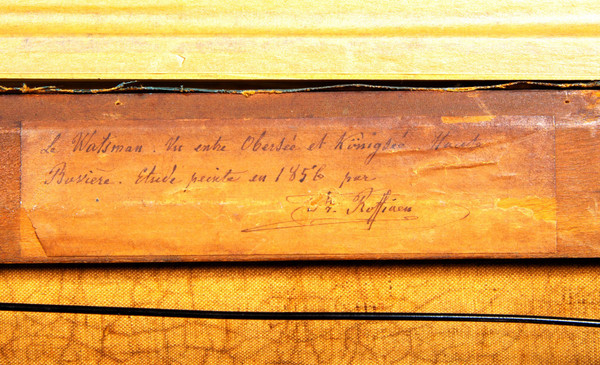 Le Watsman. Vu entre Obersée et Königsée Haute
Baviere. Etude peinte en 1856 par
Fr. Roffiaen